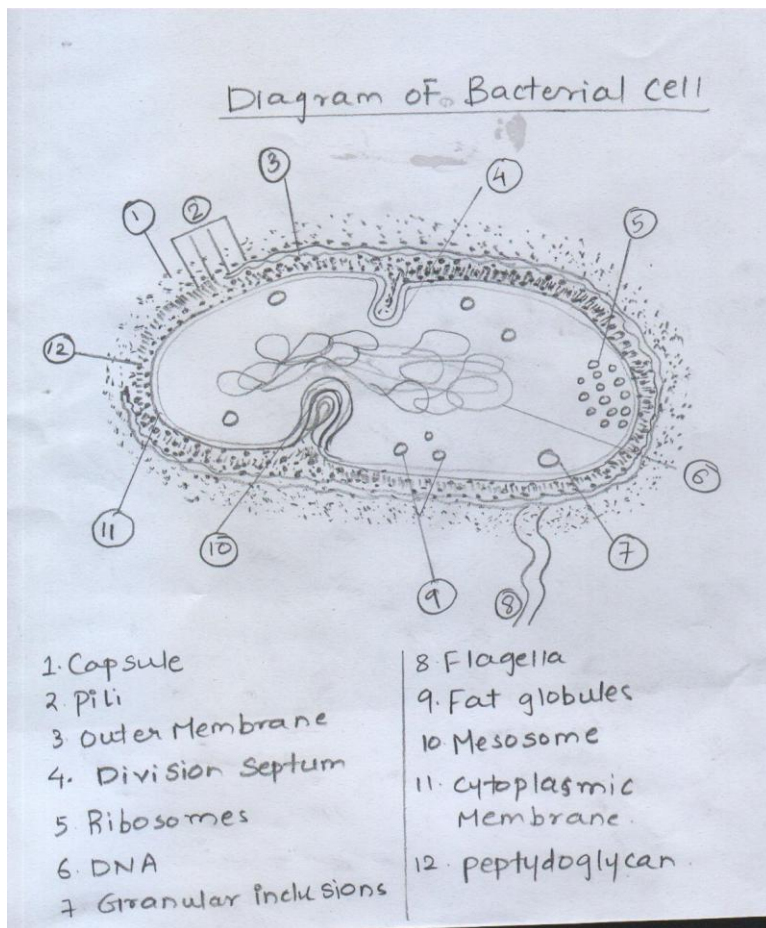 Diagram of Bacterial Cell
1
2
3
4
5
12
6
11
10
9
8
7
1. Capsule
2. Pili
3. Outer Membrane
4. Division Septum
5 Ribosomes
6. DNA
7 Granular inclusions
8. Flagella
9. Fat globules
10 Mesosome
11. Cytoplasmic
Membrane.
12. peptydoglycan